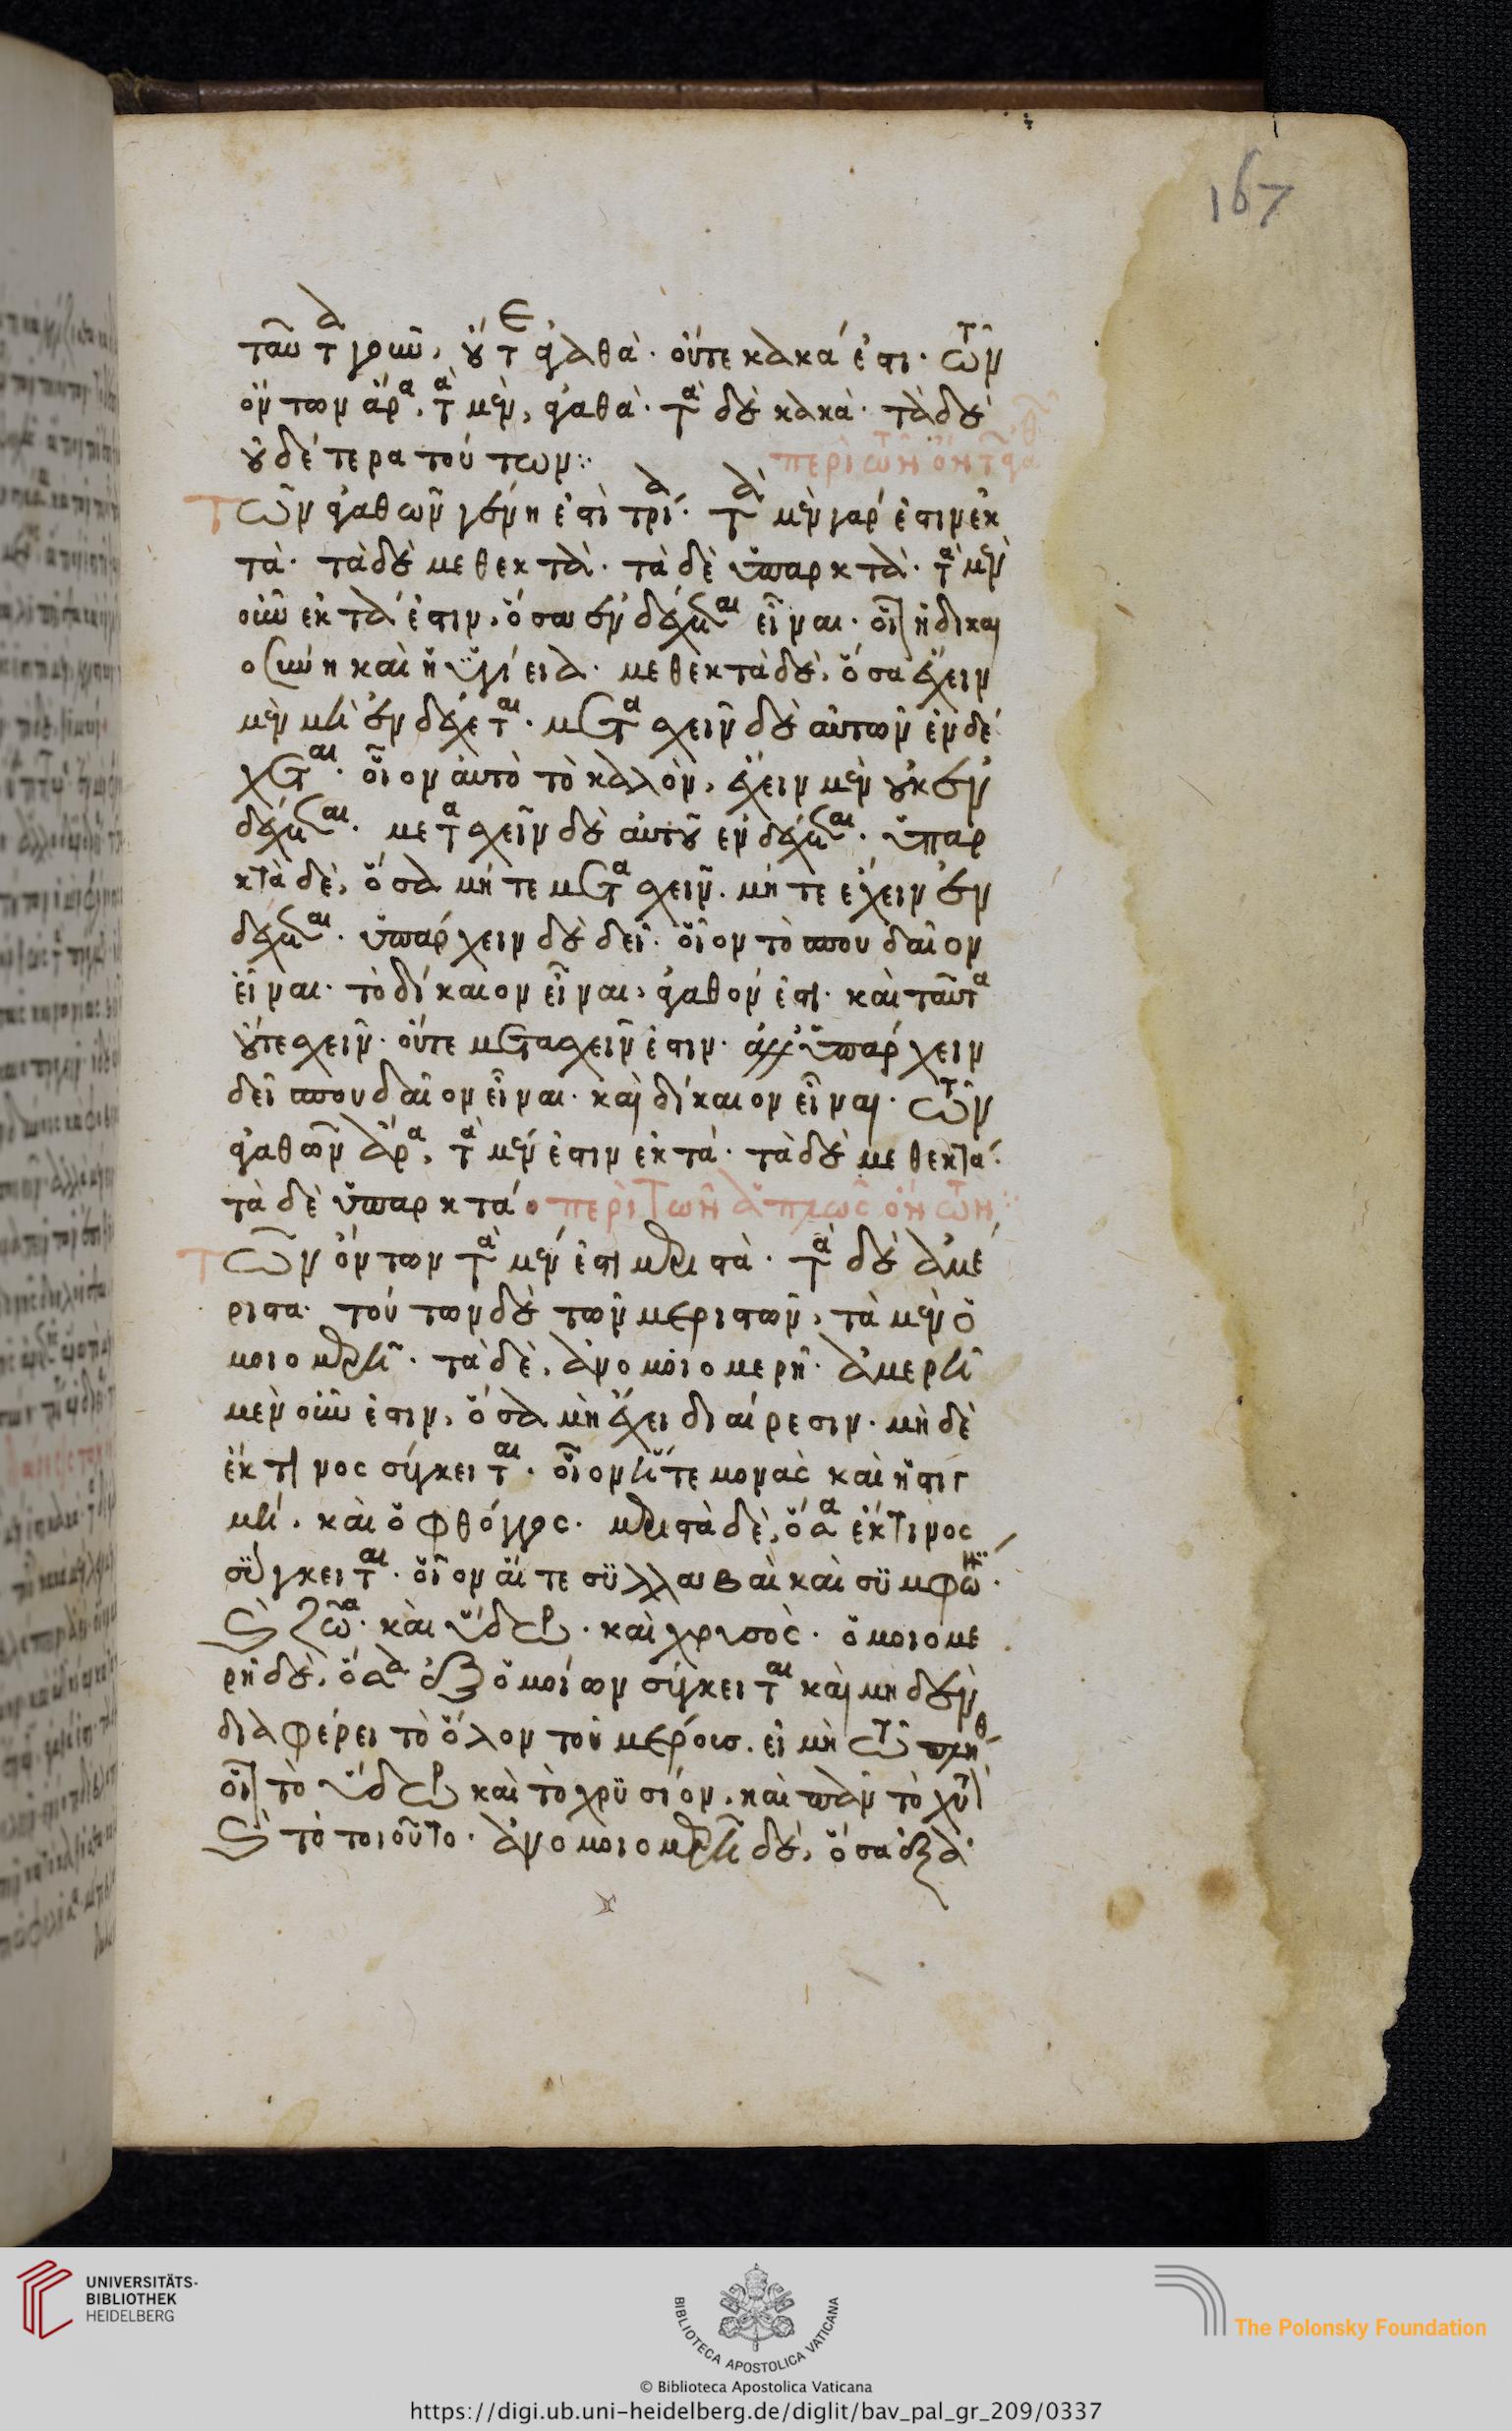 ταῦτα γοῦν, οὔτε ἀγαθὰ. οὔτε κακά ἐστι. τῶν
ὄντων ἄρα, τὰ μὲν, ἀγαθὰ. τὰ δὲ κακὰ. τὰ δὲ
οὐδέτερα τούτων:· περὶ τῶν
Τῶν ἀγαθῶν γένη ἐστὶ τρία. τὰ μὲν γάρ ἐστιν ἑκ
τὰ. τὰ δὲ μεθεκτὰ. τὰ δὲ ὑπαρκτὰ. τὰ μὲν
οὖν ἑκτά ἐστιν, ὅσα ἐνδέχεται εἶναι. οἷον ἡ δικαι
οσύνη καὶ ἡ ὑγίεια. μεθεκτὰ δὲ, ὅσα ἔχειν
μὲν μὴ ἐνδέχεται. μετασχεῖν δὲ αὐτῶν ἐνδέ
χεται. οἷον αὐτὸ τὸ καλὸν, ἔχειν μὲν οὐκ ἐν
δέχεται. μετασχεῖν δὲ αὐτοῦ ἐνδέχεται. ὑπαρ
κτὰ δὲ, ὅσα μήτε μετασχεῖν. μήτε ἔχειν ἐν
δέχεται. ὑπάρχειν δὲ δεῖ. οἷον τὸ σπουδαῖον
εἶναι. τὸ δίκαιον εἶναι, ἀγαθόν ἐστι. καὶ ταῦτα
οὔτε σχεῖν. οὔτε μετασχεῖν ἐστιν. ἀλλ' ὑπάρχειν
δεῖ σπουδαῖον εἶναι. καὶ δίκαιον εἶναι. τῶν
ἀγαθῶν ἄρα, τὰ μέν ἐστιν ἑκτά. τὰ δὲ μεθεκτά.
τὰ δὲ ὑπαρκτά· περὶ τῶν ἁπλῶς ὄντων:
Τῶν ὄντων τὰ μέν ἐστι μεριστὰ. τὰ δὲ ἀμέ
ριστα. τούτων δὲ τῶν μεριστῶν, τὰ μὲν ὁ
μοιομερῆ. τὰ δὲ, ἀνομοιομερῆ. ἀμερῆ
μὲν οὖν ἐστιν, ὅσα μὴ ἔχει διαίρεσιν. μὴ δὲ
ἔκ τινος σύγκειται. οἷον ἥ τε μονὰς καὶ ἡ στιγ
μή. καὶ ὁ φθόγγος. μεριστὰ δὲ, ὅσα ἔκ τινος
σύγκειται. οἷον αἵ τε συλλαβαὶ καὶ συμφωνίαι.
καὶ ζῶα. καὶ ὕδωρ. καὶ χρυσὸς. ὁμοιομε
ρῆ δὲ, ὅσα ἐξ ὁμοίων σύγκειται καὶ μηδὲν
διαφέρει τὸ ὅλον τοῦ μέρους. εἰ μὴ τῶ πλήθει
οἷον τὸ ὕδωρ καὶ τὸ χρυσίον. καὶ πᾶν τὸ χυτὸν
καὶ τὸ τοιοῦτο. ἀνομοιομερῆ δὲ, ὅσα ἐξ ἀ
167
UNIVERSITÄTS-
BIBLIOTHEK
HEIDELBERG
BIBLIOTECA APOSTOLICA VATICANA
The Polonsky Foundation
© Biblioteca Apostolica Vaticana
https://digi.ub.uni-heidelberg.de/diglit/bav_pal_gr_209/0337